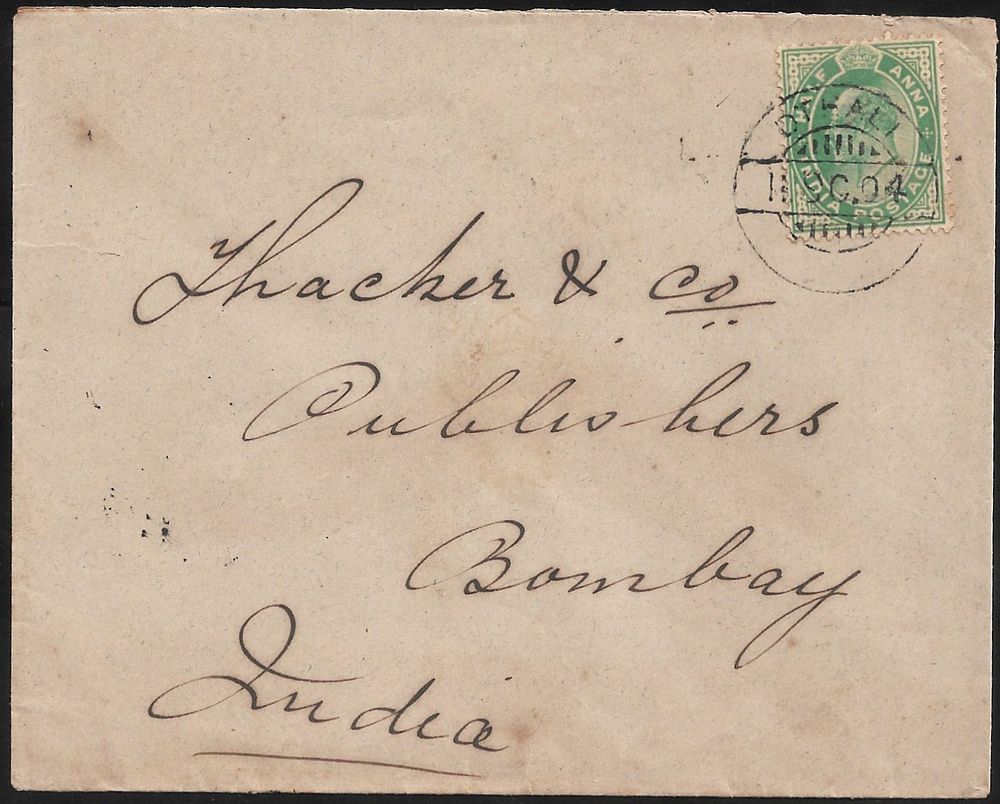 HALF ANNA
INDIA POSTAGE
Thacker & Co
Publishers
Bombay
India